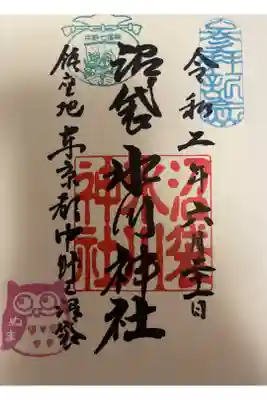 令和二年六月二十一日
沼袋氷川神社
鎮座地 東京都中野区沼袋
沼袋
氷川
神社
中野七福神
ぬま